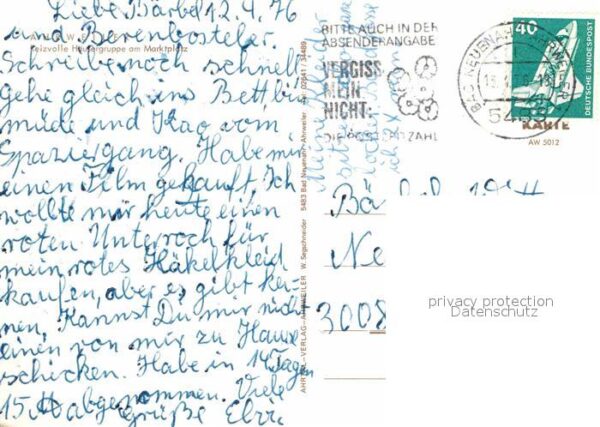 Liebe Bärbel 12.4.76
und Berenbosteler.
Schreibe noch schnell
gehe gleich ins Bett bin
müde und Kao vom
Spaziergang. Habe mir
einen Film gekauft. Ich
wollte mir heute einen
roten Unterroch für
mein rotes Häkelkleid
kaufen, aber es gibt kei-
nen. Kannst Du mir nicht
einen von mir zu Haus
schicken. Habe in 14 Tagen
15 ℔ abgenommen. Viele
Grüße
Reizvolle Häusergruppe am Marktplatz
AHRTAL-VERLAG-AHRWEILER W. Segschneider 5483 Bad Neuenahr-Ahrweiler
BITTE AUCH IN DER
ABSENDERANGABE
VERGISS
MEIN
NICHT:
DIE POSTLEITZAHL
BAD NEUENAHR-AHRWEILER
40
DEUTSCHE BUNDESPOST
KARTE
AW 5012
Meine
Bä
Ne
3008
privacy protection
Datenschutz